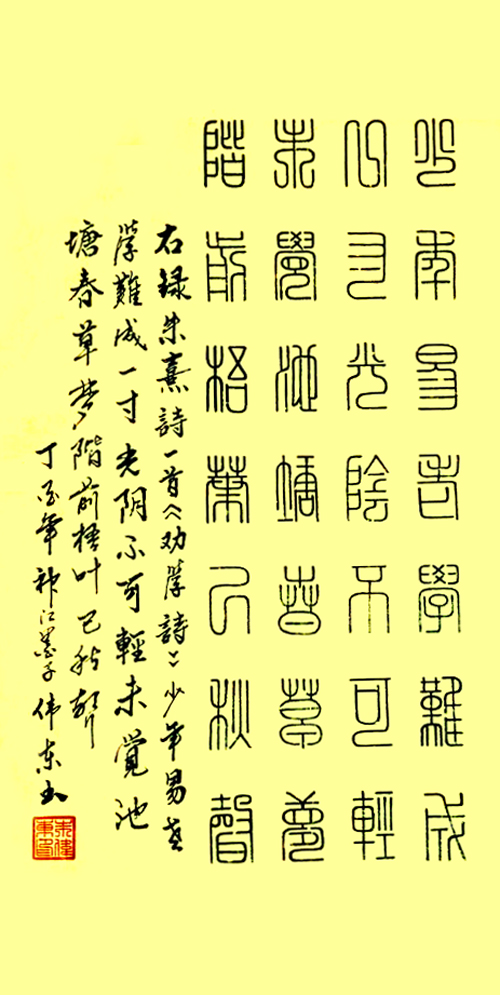 少年易老學難成
一寸光陰不可輕
未覺池塘春草夢
階前梧葉已秋聲
右録朱熹詩一首《劝學詩》少年易老
學難成一寸光阴不可輕未覺池
塘春草梦階前梧叶已秋聲
丁酉年江墨子伟东书